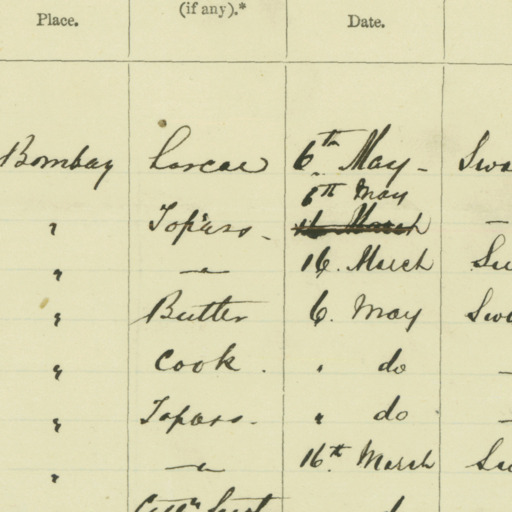 Place. (if any).* Date.
Bombay Lascar 6th May -
6th May
" Topass - 16 March -
" " 16. March
" Butler 6. May
" Cook. " do -
" Topass. " do -
" " 16th March